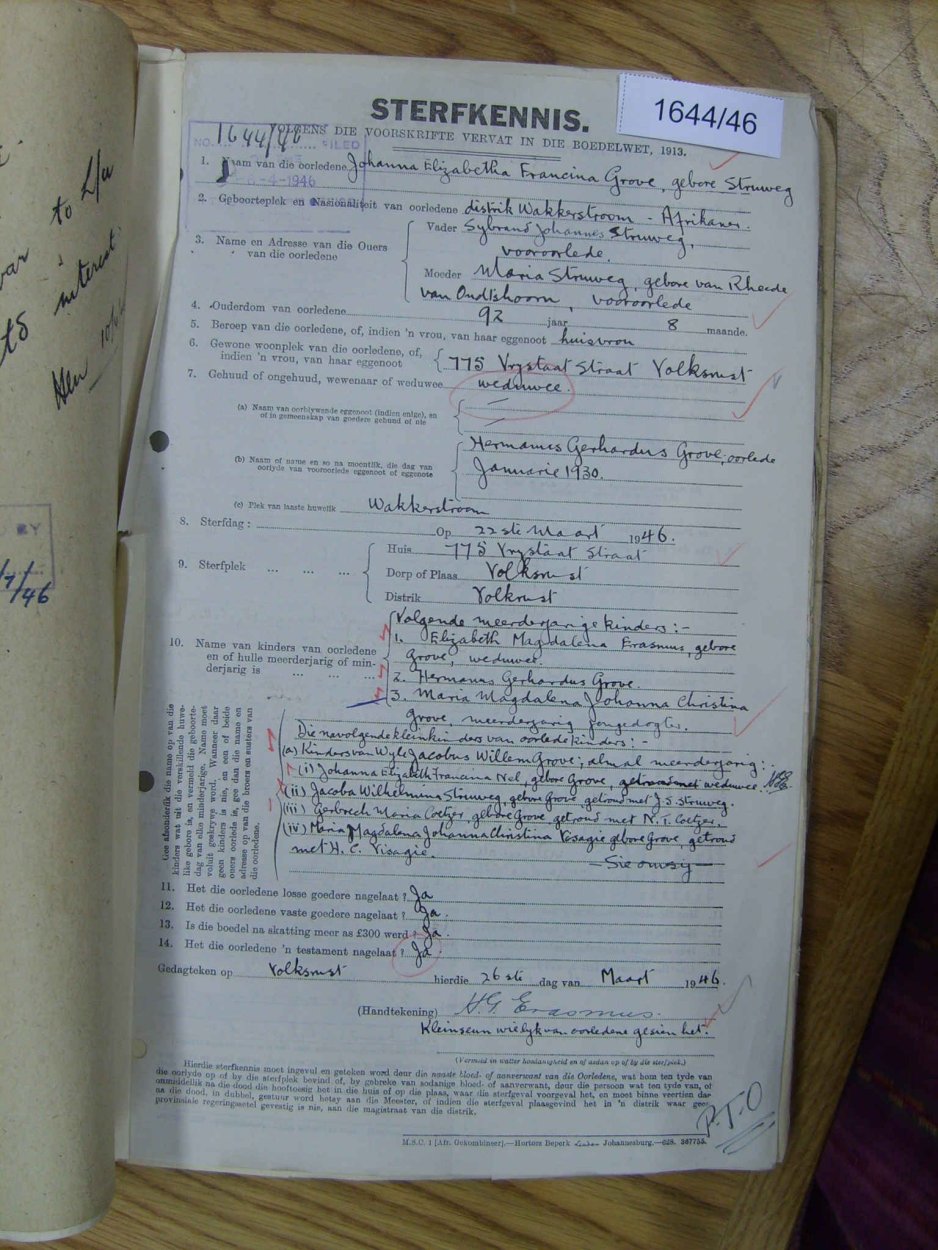 STERFKENNIS.
1644/46
VOLGENS DIE VOORSKRIFTE VERVAT IN DIE BOEDELWET, 1913.
NO. 1644/46 FILED
-4-1946
1. Naam van die oorledene Johanna Elizabetha Francina Grove, gebore Struweg
2. Geboorteplek en Nasionaliteit van oorledene distrik Wakkerstroom - Afrikaner.
3. Name en Adresse van die Ouers van die oorledene
Vader Sybrand Johannes Struweg,
vooroorlede.
Moeder Maria Struweg, gebore van Rheede
van Oudtshoorn, vooroorlede
4. Ouderdom van oorledene 92 jaar 8 maande.
5. Beroep van die oorledene, of, indien 'n vrou, van haar eggenoot huisvrou
6. Gewone woonplek van die oorledene, of, indien 'n vrou, van haar eggenoot 775 Vrystaat Straat Volksrust
7. Gehuud of ongehuud, wewenaar of weduwee weduwee
(a) Naam van oorblywende eggenoot (indien enige), en of in gemeenskap van goedere gehuud of nie —
(b) Naam of name en so na moontlik, die dag van oorlyde van vooroorlede eggenoot of eggenote
Hermanus Gerhardus Grove, oorlede
Januarie 1930.
(c) Plek van laaste huwelik Wakkerstroom
8. Sterfdag: Op 22ste Maart 1946.
9. Sterfplek ... ... ...
Huis 775 Vrystaat Straat
Dorp of Plaas Volksrust
Distrik Volksrust
10. Name van kinders van oorledene en of hulle meerderjarig of minderjarig is ... ... ...
Volgende meerderjarige kinders:-
1. Elizabeth Magdalena Erasmus, gebore
Grove, weduwee.
2. Hermanus Gerhardus Grove.
3. Maria Magdalena Johanna Christina
Grove, meerderjarig jongedogter.
Die navolgende kleinkinders van oorlede kinders:
(a) Kinders van Wyle Jacobus Willem Grove; almal meerderjarig:
(i) Johanna Elizabeth Francina Nel, gebore Grove, getroud met weduwee.
(ii) Jacoba Wilhelmina Struweg, gebore Grove, getroud met J.S. Struweg.
(iii) Gerbrech Maria Coetzer, gebore Grove, getroud met N.T. Coetzer.
(iv) Maria Magdalena Johanna Christina Visagie gebore Grove, getroud
met H.C. Visagie.
—Sie omsy—
Gee afsonderlik die name op van die kinders wat uit die verskillende huwelike gebore is, en vermeld die geboortedag van elke minderjarige. Name moet voluit geskrywe word. Wanneer daar geen kinders is nie, en een of beide ouers oorlede is, gee dan die name en adresse op van die broers en susters van die oorledene.
11. Het die oorledene losse goedere nagelaat? Ja
12. Het die oorledene vaste goedere nagelaat? Ja.
13. Is die boedel na skatting meer as £300 werd? Ja.
14. Het die oorledene 'n testament nagelaat? Ja.
Gedagteken op Volksrust hierdie 26ste dag van Maart 1946.
(Handtekening) H.G. Erasmus.
Kleinseun wie lyk van oorledene gesien het.
(Vermeld in watter hoedanigheid en of sodan op of by die sterfplek.)
Hierdie sterfkennis moet ingevul en geteken word deur die naaste bloed- of aanverwant van die Oorledene, wat ten tyde van
die oorlyde op of by die sterfplek bevind of, by gebreke van sodanige bloed- of aanverwant, deur die persoon wat ten tyde van, of
onmiddellik na die dood die hooftoesig het in die huis of op die plaas, waar die sterfgeval voorgeval het, en moet binne veertien dae
na die dood, in dubbel, gestuur word hetsy aan die Meester, of indien die sterfgeval plaasgevind het in 'n distrik waar geen
provinsiale regeringsetel gevestig is nie, aan die magistraat van die distrik.
P.T.O
M.S.C. 1 [Afr. Gekombineer].—Hortors Beperk Johannesburg.—628. 367755.
to L/u
interest
BY
/7/46